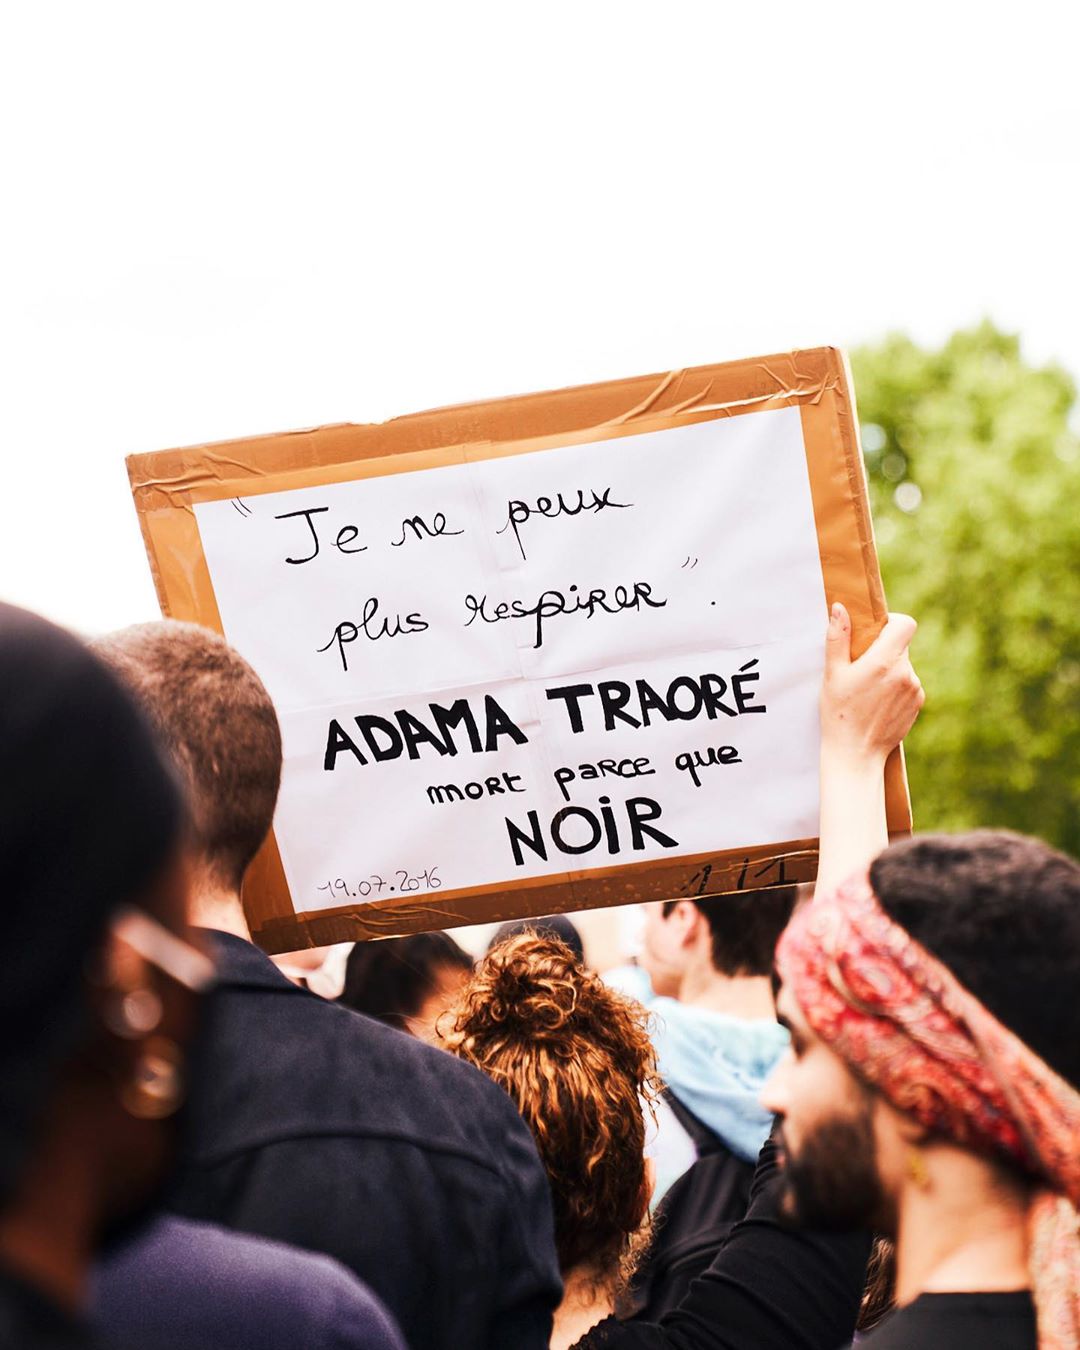 "Je ne peux
plus respirer".
ADAMA TRAORÉ
mort parce que
NOIR
19.07.2016